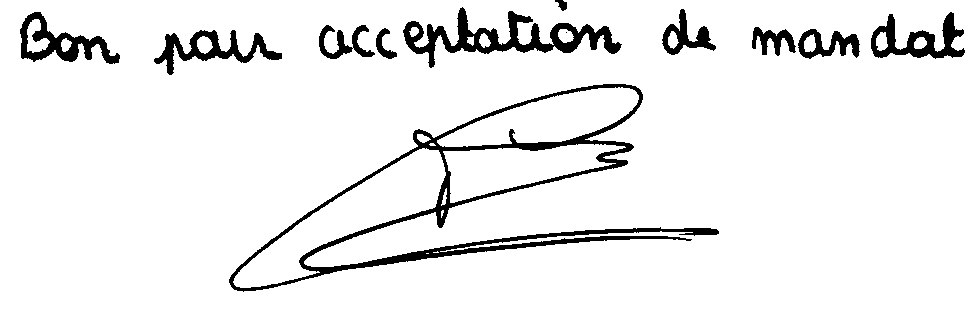 Bon pour acceptation de mandat